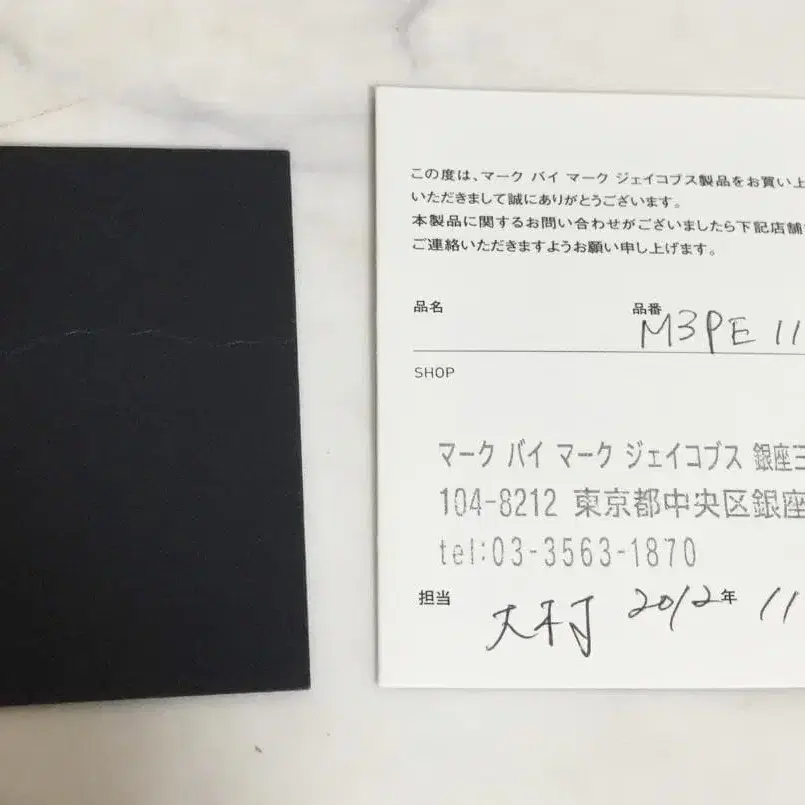 この度は、マーク バイ マーク ジェイコブス製品をお買い上
いただきまして誠にありがとうございます。
本製品に関するお問い合わせがございましたら下記店舗
ご連絡いただきますようお願い申し上げます。
品名 品番 M3PE 11
SHOP
マーク バイ マーク ジェイコブス 銀座三
104-8212 東京都中央区銀座
tel:03-3563-1870
担当 大村 2012年 11